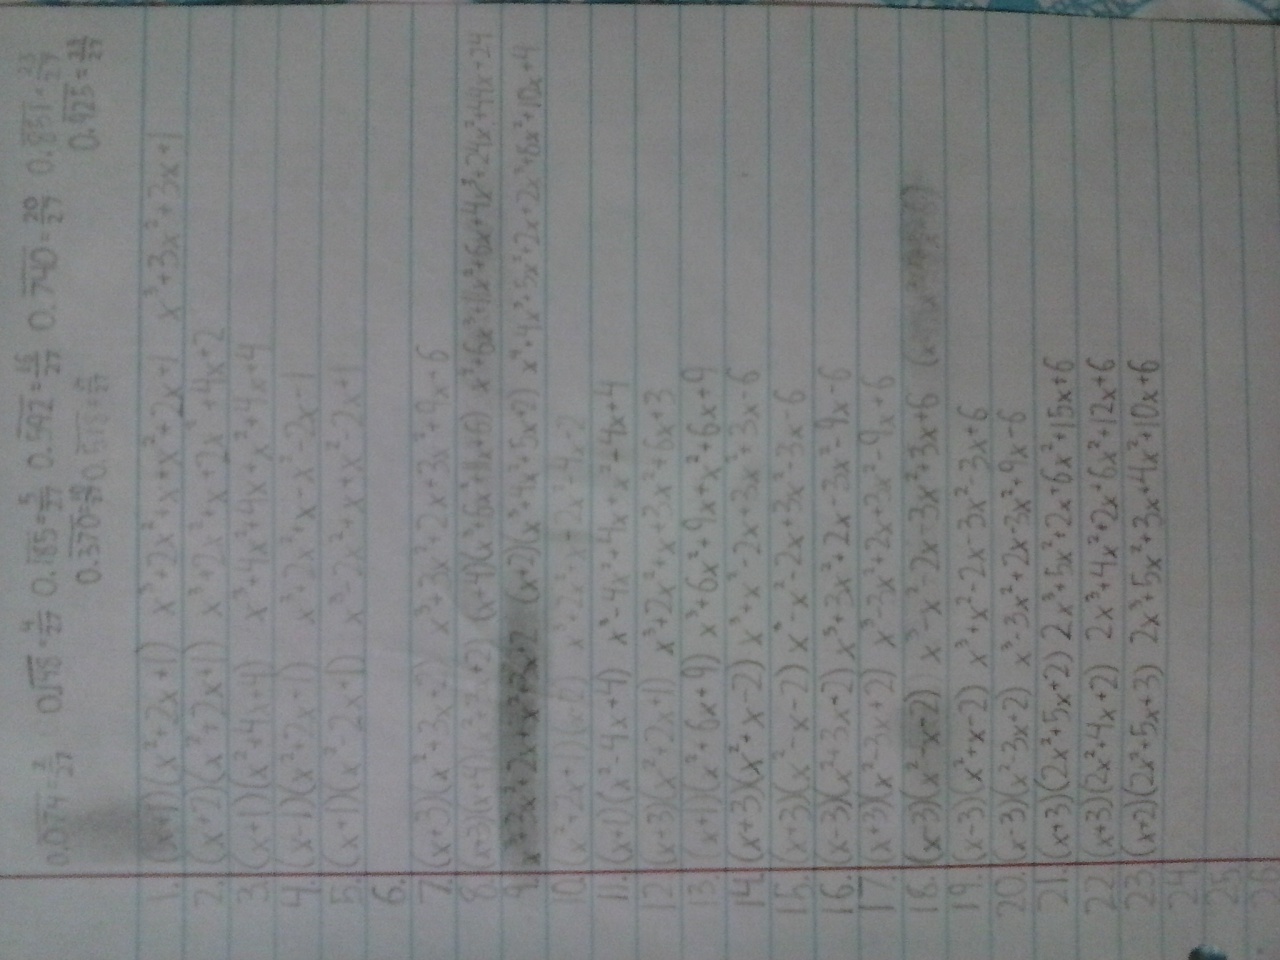 0.074=2/27 0.148=4/27 0.185=5/27 0.592=16/27 0.740=20/27 0.851=23/27
0.370=10/27 0.518=14/27 0.925=25/27
1. (x+1)(x²+2x+1) x³+2x²+x+x²+2x+1 x³+3x²+3x+1
2. (x+2)(x²+2x+1) x³+2x²+x+2x²+4x+2
3. (x+1)(x²+4x+4) x³+4x²+4x+x²+4x+4
4. (x-1)(x²+2x+1) x³+2x²+x-x²-2x-1
5. (x+1)(x²-2x+1) x³-2x²+x+x²-2x+1
6.
7. (x+3)(x²+3x+2) x³+3x²+2x+3x²+9x+6
8. (x+3)(x+4)(x²+3x+2) (x+4)(x³+6x²+11x+6) x⁴+6x³+11x²+6x+4x³+24x²+44x+24
9. x³+3x²+2x+x²+3x+2 (x+2)(x³+4x²+5x+2) x⁴+4x³+5x²+2x+2x³+8x²+10x+4
10. (x²+2x+1)(x-2) x³+2x²+x-2x²-4x-2
11. (x+1)(x²-4x+4) x³-4x²+4x+x²-4x+4
12. (x+3)(x²+2x+1) x³+2x²+x+3x²+6x+3
13. (x+1)(x²+6x+9) x³+6x²+9x+x²+6x+9
14. (x+3)(x²+x-2) x³+x²-2x+3x²+3x-6
15. (x+3)(x²-x-2) x³-x²-2x+3x²-3x-6
16. (x-3)(x²+3x+2) x³+3x²+2x-3x²-9x-6
17. (x+3)(x²-3x+2) x³-3x²+2x+3x²-9x+6
18. (x-3)(x²-x-2) x³-x²-2x-3x²+3x+6
19. (x-3)(x²+x-2) x³+x²-2x-3x²-3x+6
20. (x-3)(x²-3x+2) x³-3x²+2x-3x²+9x-6
21. (x+3)(2x²+5x+2) 2x³+5x²+2x+6x²+15x+6
22. (x+3)(2x²+4x+2) 2x³+4x²+2x+6x²+12x+6
23. (x+2)(2x²+5x+3) 2x³+5x²+3x+4x²+10x+6
24.
25.
26.